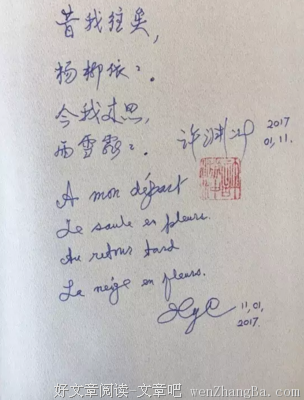 昔我往矣,
杨柳依:。
今我来思,
雨雪霏:。
许渊冲 2017
01,11.
A mon départ
Le saule en pleurs.
Au retour tard
La neige en fleurs.
XYC 11,01,
2017.
好文章阅读-文章吧 wenZhangBa.com